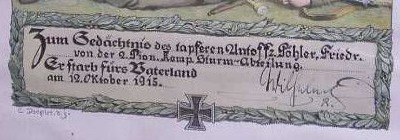 Zum Gedächtnis des tapferen Untoffz. Köhler, Friedr.
von der 2. Pion. Komp. Sturm-Abteilung.
Er starb fürs Vaterland
am 12. Oktober 1915.
Wilhelm
R.